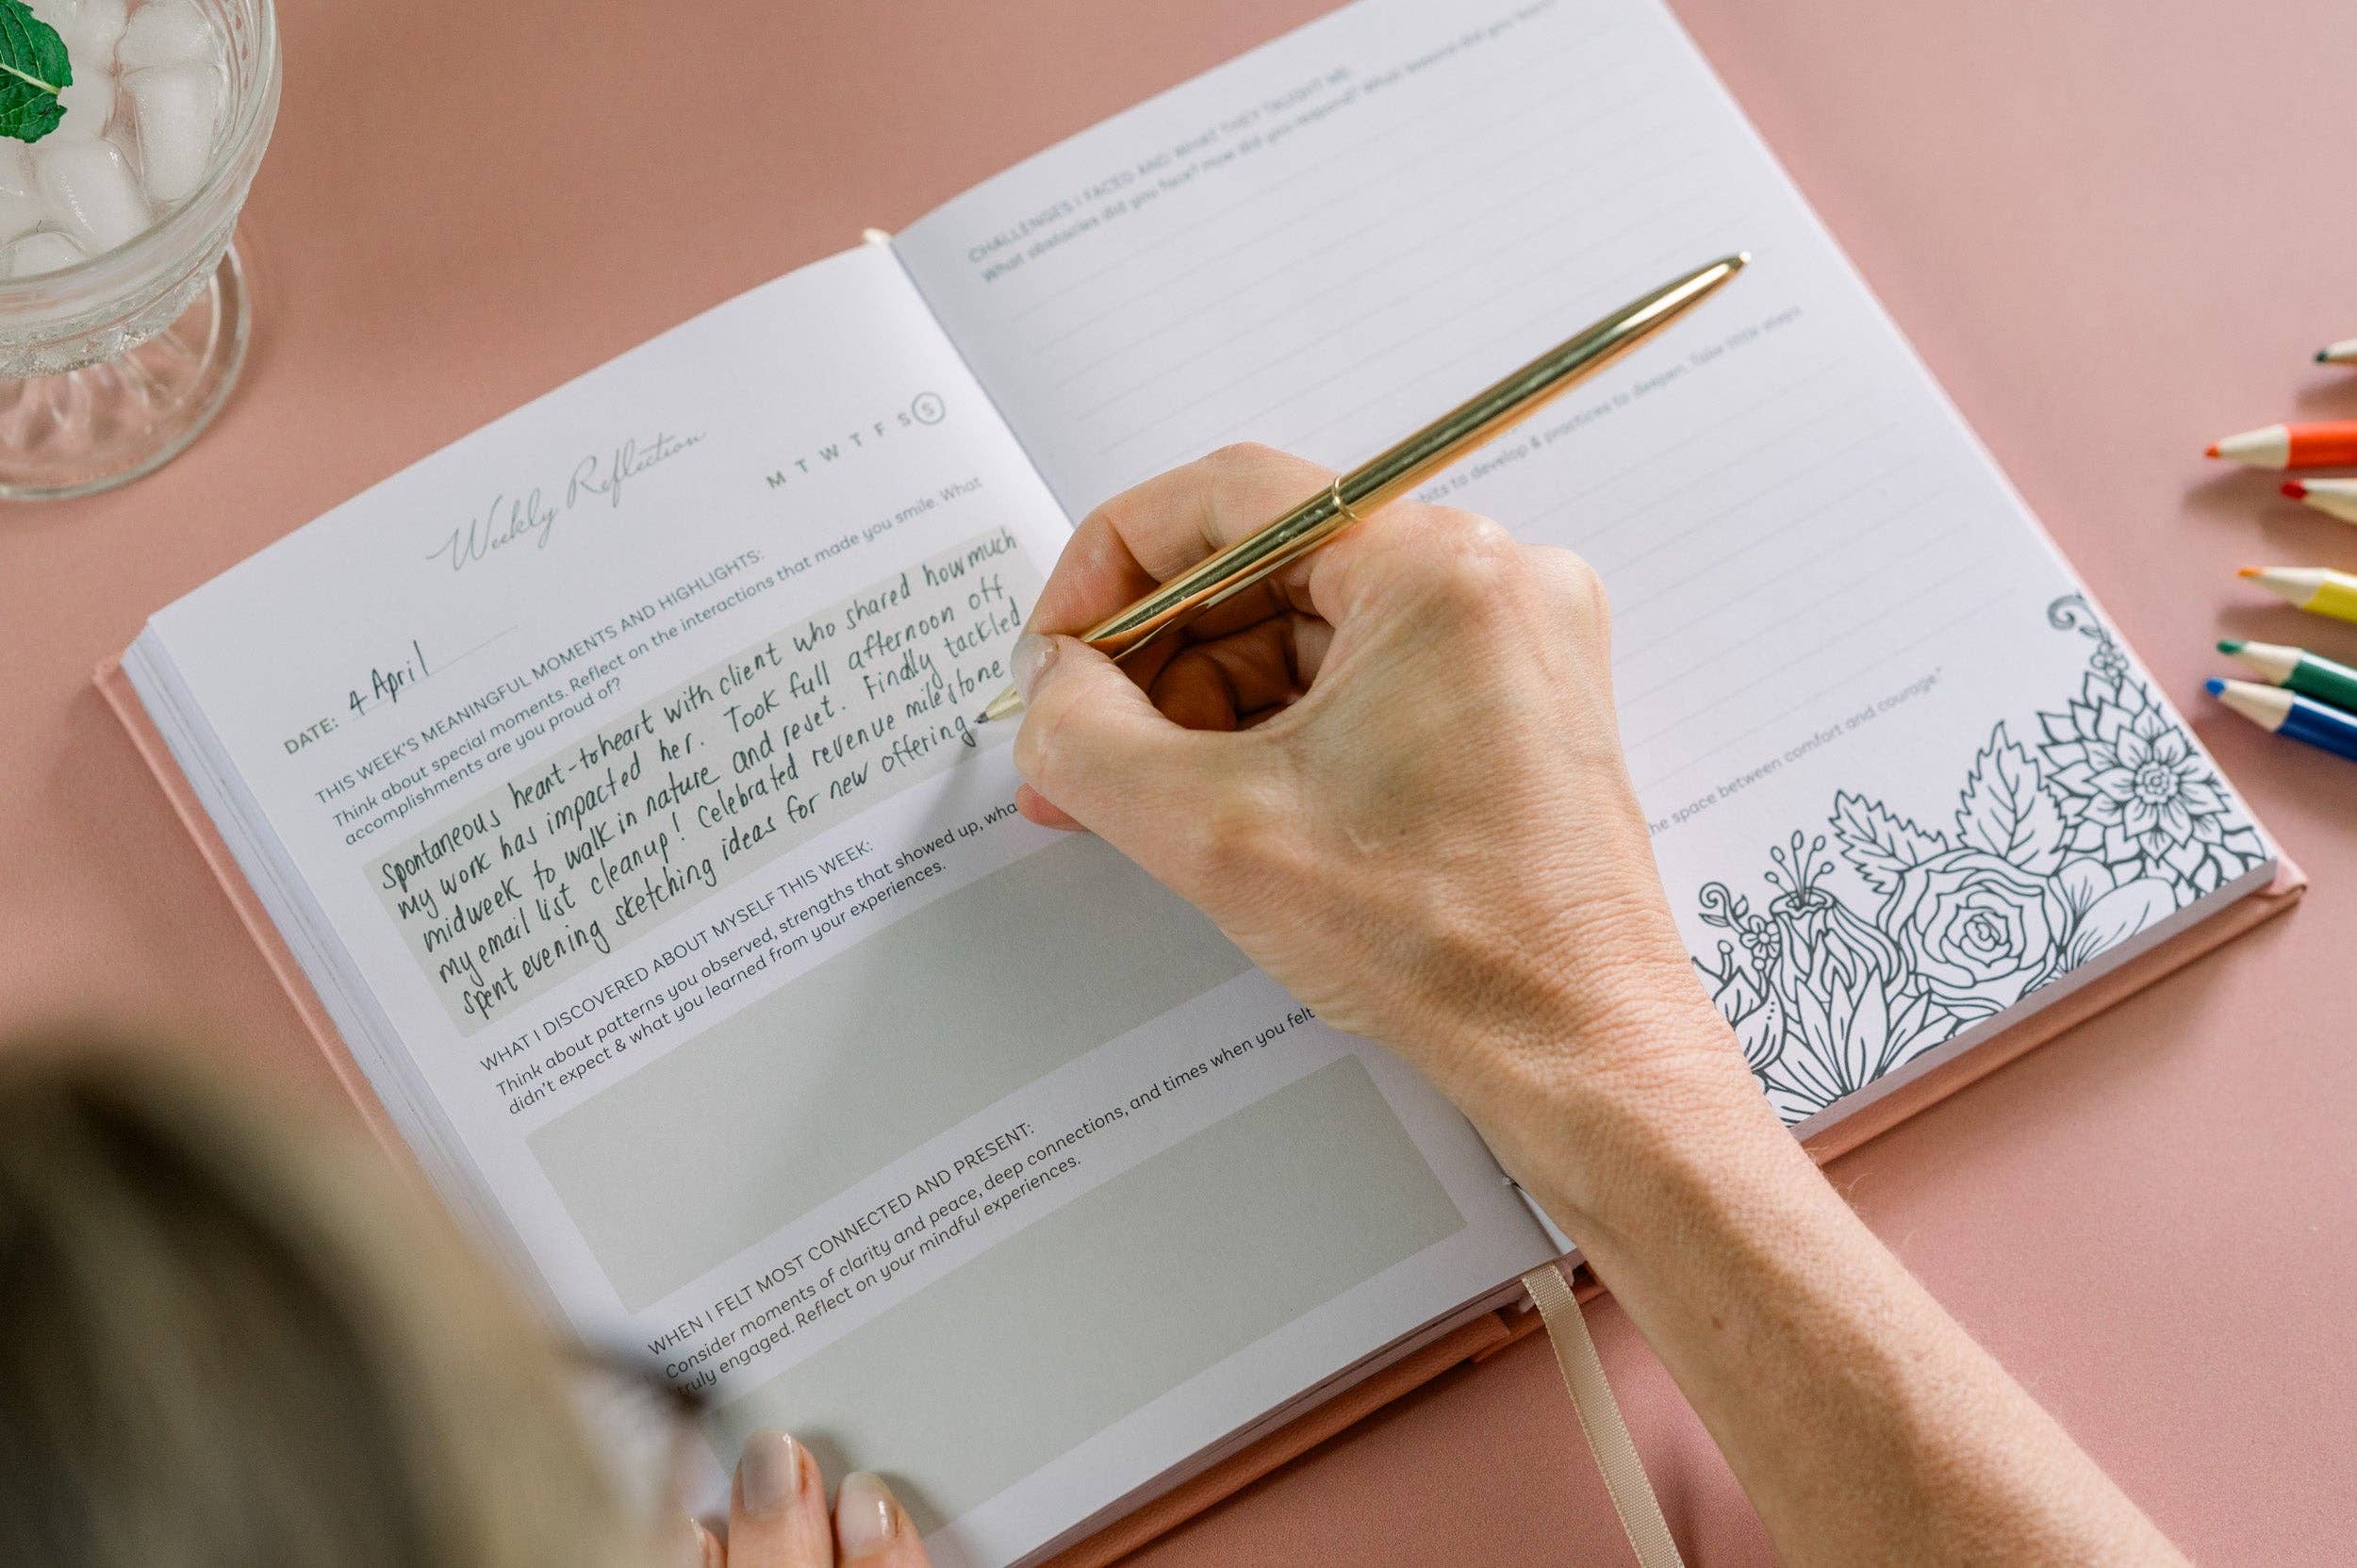 Weekly Reflection
DATE: 4 April
M T W T F S S
THIS WEEK'S MEANINGFUL MOMENTS AND HIGHLIGHTS:
Think about special moments. Reflect on the interactions that made you smile. What
accomplishments are you proud of?
Spontaneous heart-to heart with client who shared how much
my work has impacted her. Took full afternoon off
midweek to walk in nature and reset. Finally tackled
my email list cleanup! Celebrated revenue milestone
spent evening sketching ideas for new offering
WHAT I DISCOVERED ABOUT MYSELF THIS WEEK:
Think about patterns you observed, strengths that showed up, wha
didn't expect & what you learned from your experiences.
WHEN I FELT MOST CONNECTED AND PRESENT:
Consider moments of clarity and peace, deep connections, and times when you felt
truly engaged. Reflect on your mindful experiences.
CHALLENGES I FACED AND WHAT THEY TAUGHT ME
What obstacles did you face? How did you respond? What lessons did you learn?
bits to develop & practices to deepen. Take little steps
he space between comfort and courage"